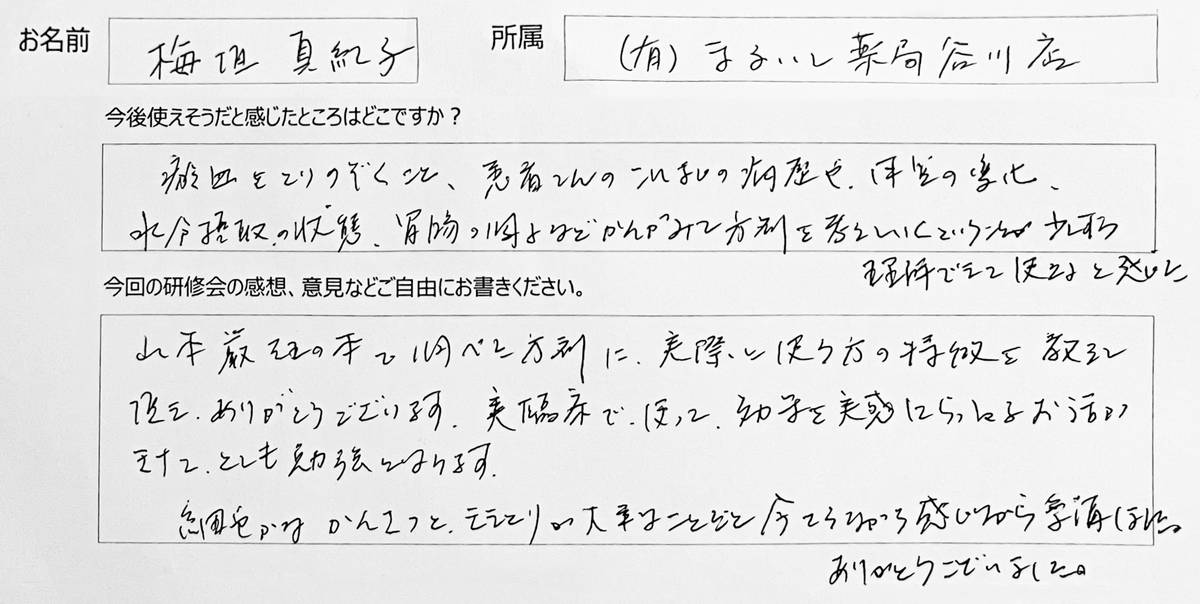 お名前 梅垣 真紀子 所属 (有)まるいし薬局谷川店
今後使えそうだと感じたところはどこですか？
瘀血をとりのぞくこと、患者さんのこれまでの病歴や、体質の変化、
水分摂取の状態、胃腸の調子などかんがみて方剤を考えていくということが少しずつ
理解できて使えると感じた
今回の研修会の感想、意見などご自由にお書きください。
山本巌先生の本で調べた方剤に、実際に使う方の特徴を教えて
頂き、ありがとうございます。実臨床で、使って、効果を実感
お話が
きけて、とても勉強になります。
細やかな かんさつと、ききとりが大事なことだと 感じながら
ありがとうございました。